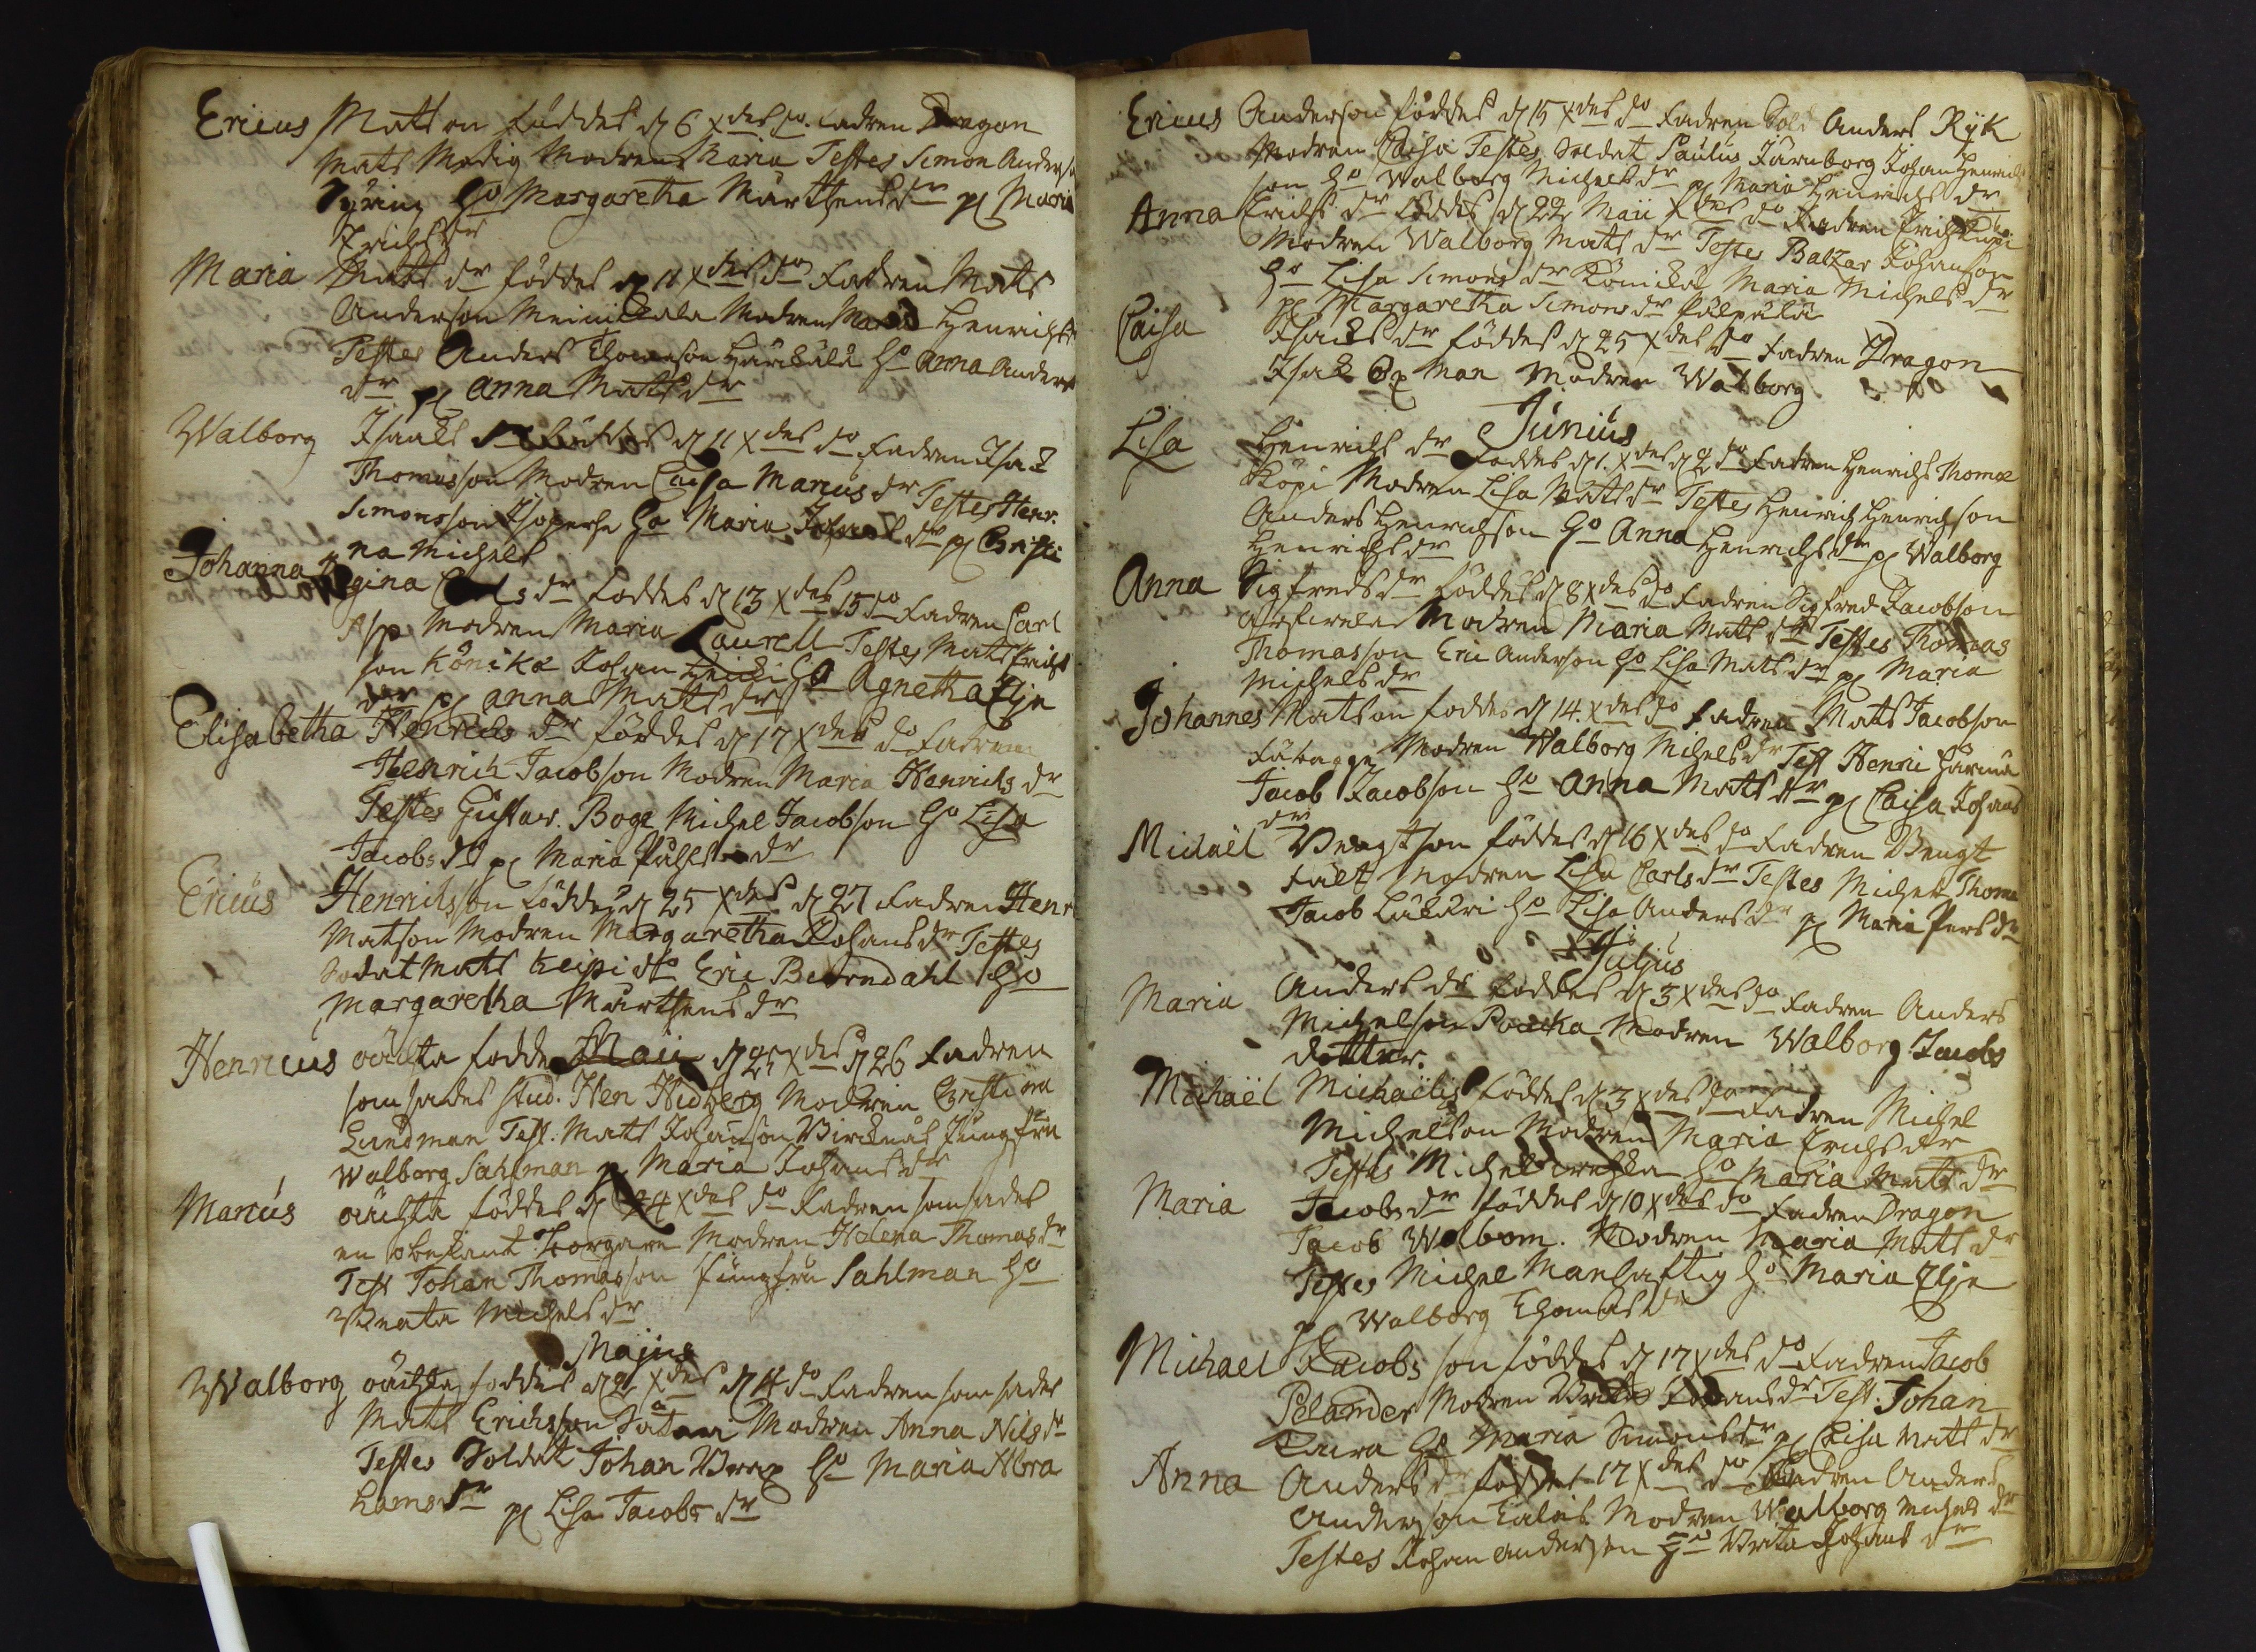 Ericus Matson föddes d 6 Xdes do. Fadren Dragon
Mats Modig Modren Maria Testes Simon Anders
Ho Margaretha Mårthens dr pq Maria
Erichs dr
Maria Matts dr föddes d 11 Xdes do Fadren Mats
Anderson Modren Maria Henrichs
Testes Anders Thomason Ho Anna Anders
dr pq Anna Matts dr
Walborg Isaaks dr föddes d 11 Xdes do Fadren Isak
Thomasson Modren Caisa Marcus dr Testes Henr.
Simonsson Ho Maria dr pq Christi
na Michels
Johanna Regina Carls dr föddes d 13 Xdes 15 do Fadren Carl
Asp Modren Maria Laurell Testes Mats Erichs
son Könikä Johan Ho Agnetha Elje
dr pq Anna Matts dr
Elisabetha Henrichs dr föddes d 17 Xdes do Fadren
Henrich Jacobson Modren Maria Henrichs dr
Testes Gustav. Boge Michel Jacobson Ho Lisa
Jacobs dr pq Maria Påhls dr
Ericus Henrichsson föddes d 25 Xdes d 27 Fadren Henr
Matson Modren Margaretha Johans dr Testes
Sodat Mats Keipi do Eric Beorndahl Ho
Margaretha Mårthens dr
Henricus oächta födde d 25 Xdes d 26 Fadren
som sades Stud. Hen Hedberg Modren Christina
Lundman Test. Matts Johanson Jungfru
Walborg Sahlman pq Maria Johans dr
Marcus oächta föddes d 24 Xdes do Fadren som sades
en obekant Modren Helena Thomas dr
Test Johan Thomasson Jungfru Sahlman Ho
Beata Michels dr
Majus
Walborg oächta föddes d 2 Xdes d 4 do Fadren som sades
Mats Erichsson Modren Anna Nils dr
Testes Soldat Johan Brax Ho Maria Abra
hams dr pq Lisa Jacobs dr
Ericus Anderson föddes d 15 Xdes do Fadren Sold Anders Ryk
Modren Caisa Testes Soldat Paulus Järnborg Johan Henrich
son Ho Walborg Michels dr pq Maria Henrichs dr
Anna Erichs dr föddes d 22 Maii Xdes do Fadren Erich
Modren Walborg Mats dr Testes Baltzar Johanson
Ho Lisa Simons dr Könikä Maria Michels dr
pq Margaretha Simons dr
Caisa Isaks dr föddes d 25 Xdes do Fadren Dragon
Isak Ox man Modren Walborg
Junius
Lisa Henrichs dr föddes d 1. Xdes d 2 do Fadren Henrich Thomæ
Köpi Modren Lisa Matts dr Testes Henrich Henrichson
Anders Henrichson Ho Anna Henrichs dr pq Walborg
Henrichs dr
Anna Sigfreds dr föddes d 8 Xdes do Fadren Sigfred Jacobson
Modren Maria Matts dr Testes Thomas
Thomasson Eric Anderson Ho Lisa Mats dr pq Maria
Michels dr
Johannes Matson föddes d 14. Xdes do Fadren Mats Jacobson
Modren Walborg Michels dr Test Henric
Jacob Jacobson Ho Anna Matts dr pq Caisa Johans
dr
Michaël Bengtson föddes d 16 Xdes do Fadren Bengt
Falt Modren Lisa Carls dr Testes Michel Thome
Jacob Lukkari Ho Lisa Anders dr pq Maria Pers dr
Julius
Maria Anders dr föddes d 3 Xdes do Fadren Anders
Michelson Poucka Modren Walborg Jacobs
dotter.
Michaël Michaëlis föddes d 3 Xdes do Fadren Michel
Michelson Modren Maria Erichs dr
Testes Michel Ho Maria Mats dr
Maria Jacobs dr föddes d 10 Xdes do Fadren Dragon
Jacob Walbom. Modren Maria Matts dr
Testes Michel Manhaftig Ho Maria Elje
pq Walborg Thomas dr
Michael Jacobs son föddes d 17 Xdes do Fadren Jacob
Pelander Modren Brita Johans dr Test. Johan
Ho Maria Simons dr pq Caisa Matts dr
Anna Anders dr föddes 17 Xdes do Fadren Anders
Anderson Modren Walborg Michels dr
Testes Johan Anderson Ho Brita Johans dr